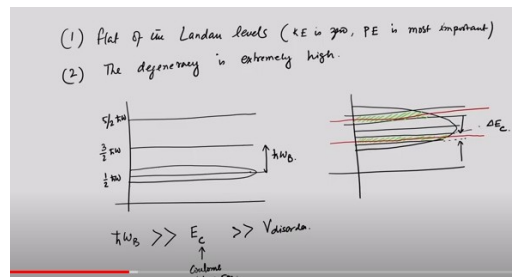 (1) flat of the Landau levels (KE is zero, PE is most important)
(2) The degeneracy is extremely high.
5/2 ħω
3/2 ħω
1/2 ħω
ħω_B
ΔE_c
ħω_B >> E_c >> V_disorder
Coulomb